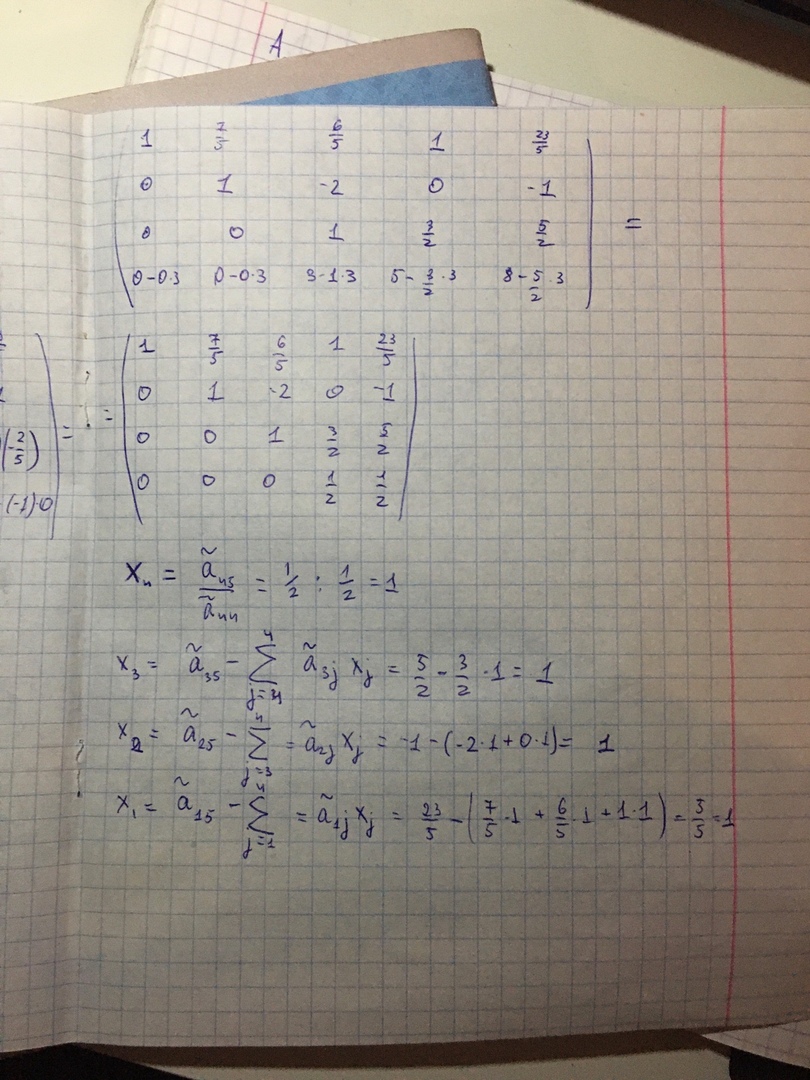 A
1 7/5 6/5 1 23/5
0 1 -2 0 -1
0 0 1 3/2 5/2 =
0-0·3 0-0·3 3-1·3 5-3/2·3 8-5/2·3
1 7/5 6/5 1 23/5
0 1 -2 0 -1
(-2/5) = = 0 0 1 3/2 5/2
(-1)·0 0 0 0 1/2 1/2
X₄ = ã₄₅/ã₄₄ = 1/2 : 1/2 = 1
x₃ = ã₃₅ - ∑_{j=4}^{4} ã₃j xj = 5/2 - 3/2 · 1 = 1
x₂ = ã₂₅ - ∑_{j=3}^{4} = ã₂j xj = -1 - (-2·1 + 0·1) = 1
x₁ = ã₁₅ - ∑_{j=1}^{4} = ã₁j xj = 23/5 - (7/5·1 + 6/5·1 + 1·1) = 5/5 = 1